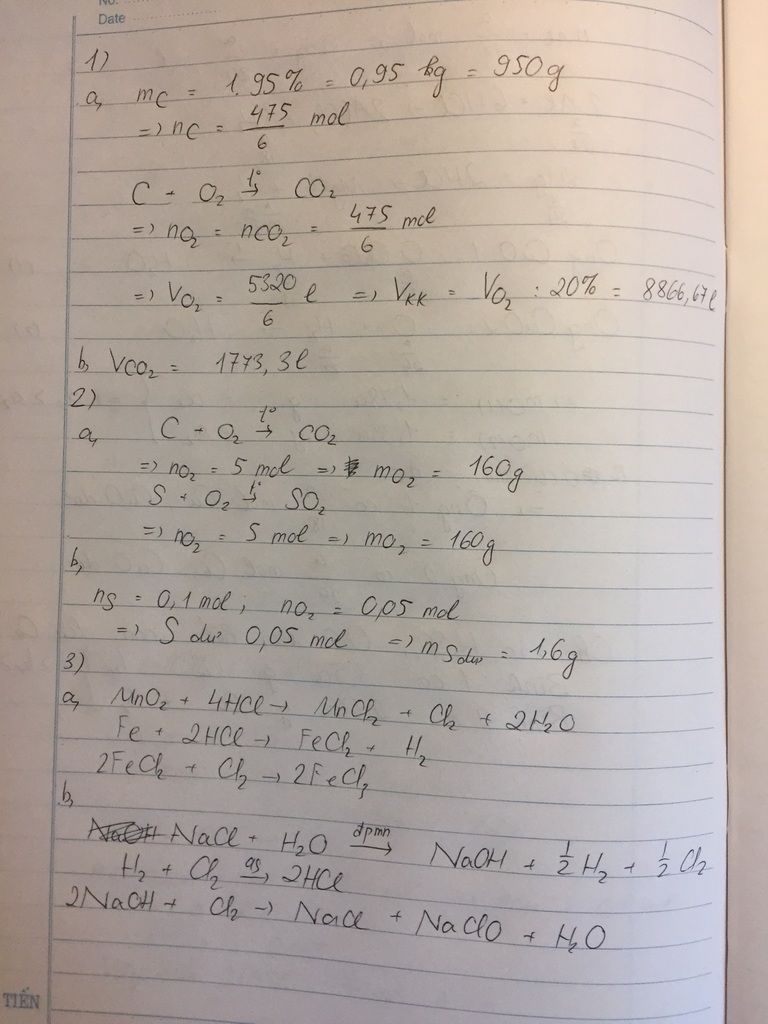 No.
Date
1)
a, mC = 1.95% = 0,95 kg = 950g
=> nC = 475/6 mol
C + O₂ t°→ CO₂
=> nO₂ = nCO₂ = 475/6 mol
=> VO₂ = 5320/6 l => VKK = VO₂ : 20% = 8866,67l
b, VCO₂ = 1773,3l
2)
a, C + O₂ t°→ CO₂
=> nO₂ = 5 mol => mO₂ = 160g
S + O₂ t°→ SO₂
=> nO₂ = 5 mol => mO₂ = 160g
b,
nS = 0,1 mol; nO₂ = 0,05 mol
=> S dư 0,05 mol => mSdư = 1,6g
3)
a, MnO₂ + 4HCl → MnCl₂ + Cl₂ + 2H₂O
Fe + 2HCl → FeCl₂ + H₂
2FeCl₂ + Cl₂ → 2FeCl₃
b,
NaCl + H₂O đpmn→ NaOH + 1/2 H₂ + 1/2 Cl₂
H₂ + Cl₂ as→ 2HCl
2NaOH + Cl₂ → NaCl + NaClO + H₂O
TIẾN